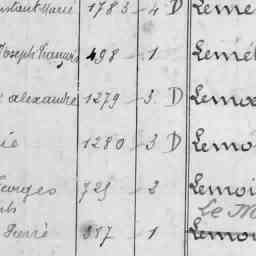 Constant Marie 1783 - 4 D Lemé
Joseph François 498 - 1 Lemél
alexandre 1279 - 3. D Lemoi
ie 1280 - 3 D Lemo
Georges 725 - 2 Lemoi
Le M
Pierre 357 - 1 Lemoi